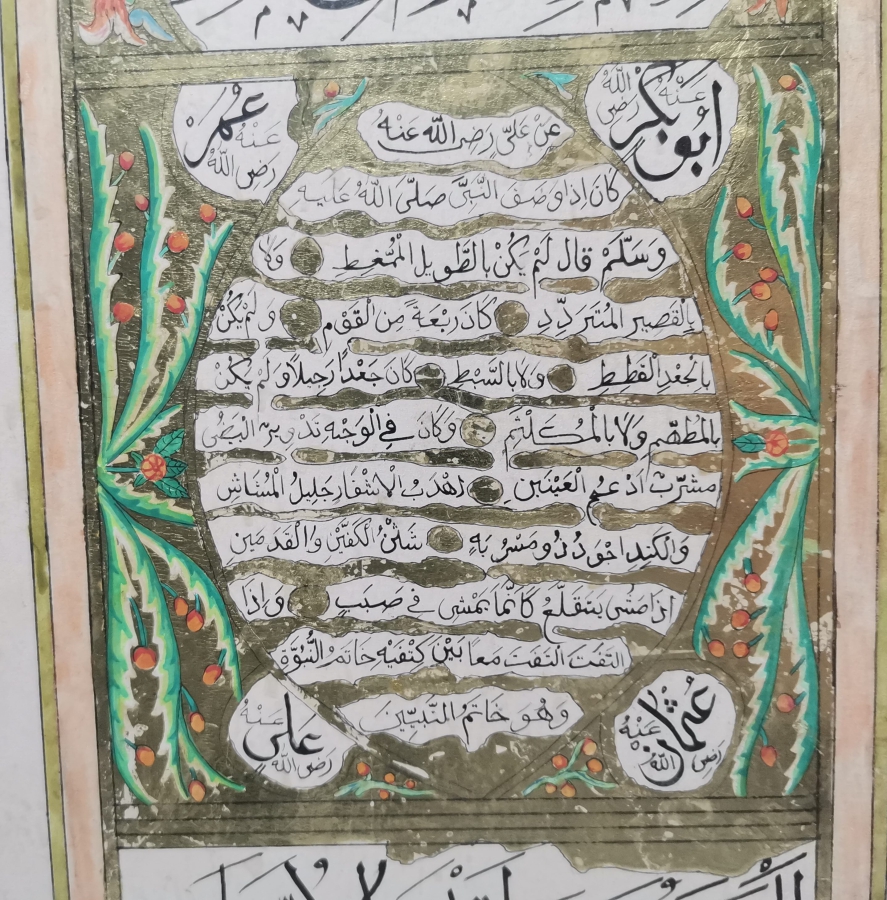 ابو بكر رضى الله عنه
عمر رضى الله عنه
عن على رضى الله عنه
كان اذا وصف النبى صلى الله عليه
وسلم قال لم يكن بالطويل الممغط ولا
بالقصير المتردد كان ربعة من القوم ولم يكن
بالجعد القطط ولا بالسبط كان جعدا رجلا ولم يكن
بالمطهم ولا بالمكلثم وكان فى الوجه تدوير ابيض
مشرب ادعج العينين اهدب الاشفار جليل المشاش
والكتد اجرد ذو مسربه شثن الكفين والقدمين
اذا مشى يتقلع كانما يمشى فى صبب واذا
التفت التفت معا بين كتفيه خاتم النبوة
وهو خاتم النبيين
عثمان رضى الله عنه
على رضى الله عنه